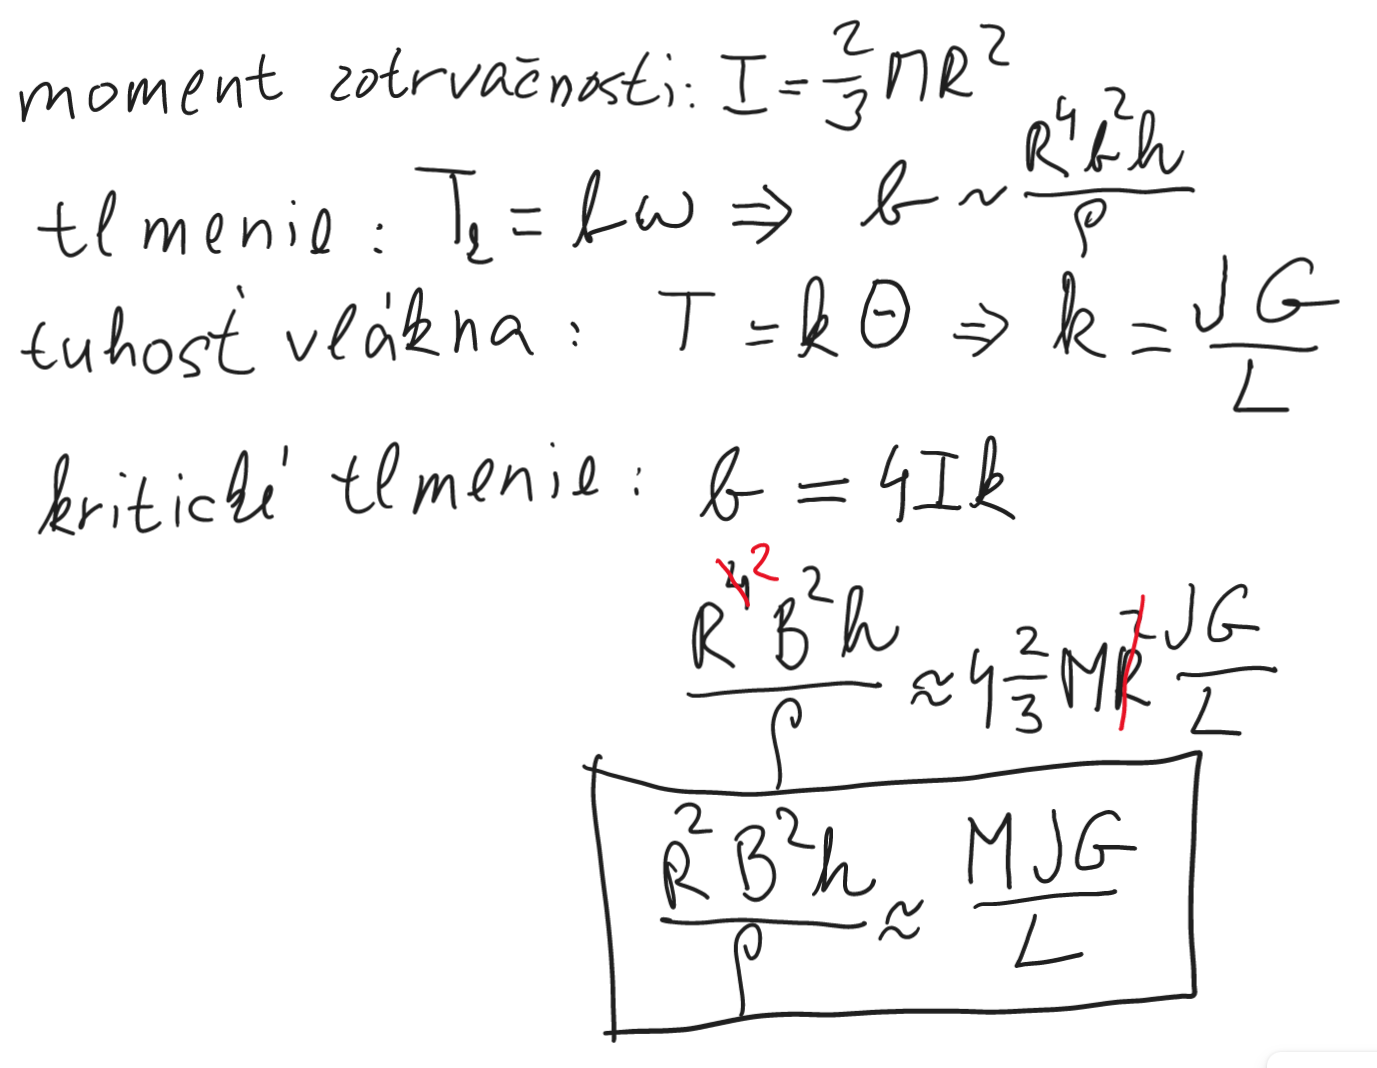 moment zotrvačnosti: I = 2/3 MR²
tlmenie: T₂ = bω ⇒ b ~ R⁴b²h/ρ
tuhosť vlákna: T = kΘ ⇒ k = JG/L
kritické tlmenie: b = 4Ik
R⁴² B²h/ρ ≈ 4 2/3 MR² JG/L
R²B²h/ρ ≈ MJG/L